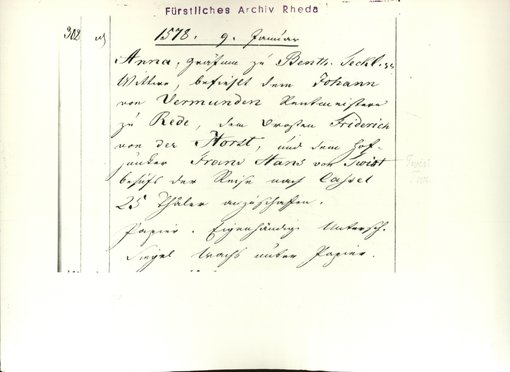 Fürstliches Archiv Rheda
302
1578. 9. Januar
Anna, gräfinn zu Benth. Teckl. &
Wittwe, befiehlt dem Johann
von Vermunden Rentmeistere
zu Rede, dem Drosten Friderich
von der Horst, und dem Hof-
junker Frans Hans von Twist
behufs der Reise nach Cassel
25 Thaler anzuschaffen.
Papier. Eigenhändige Untersch.
Siegel Wachs unter Papier.